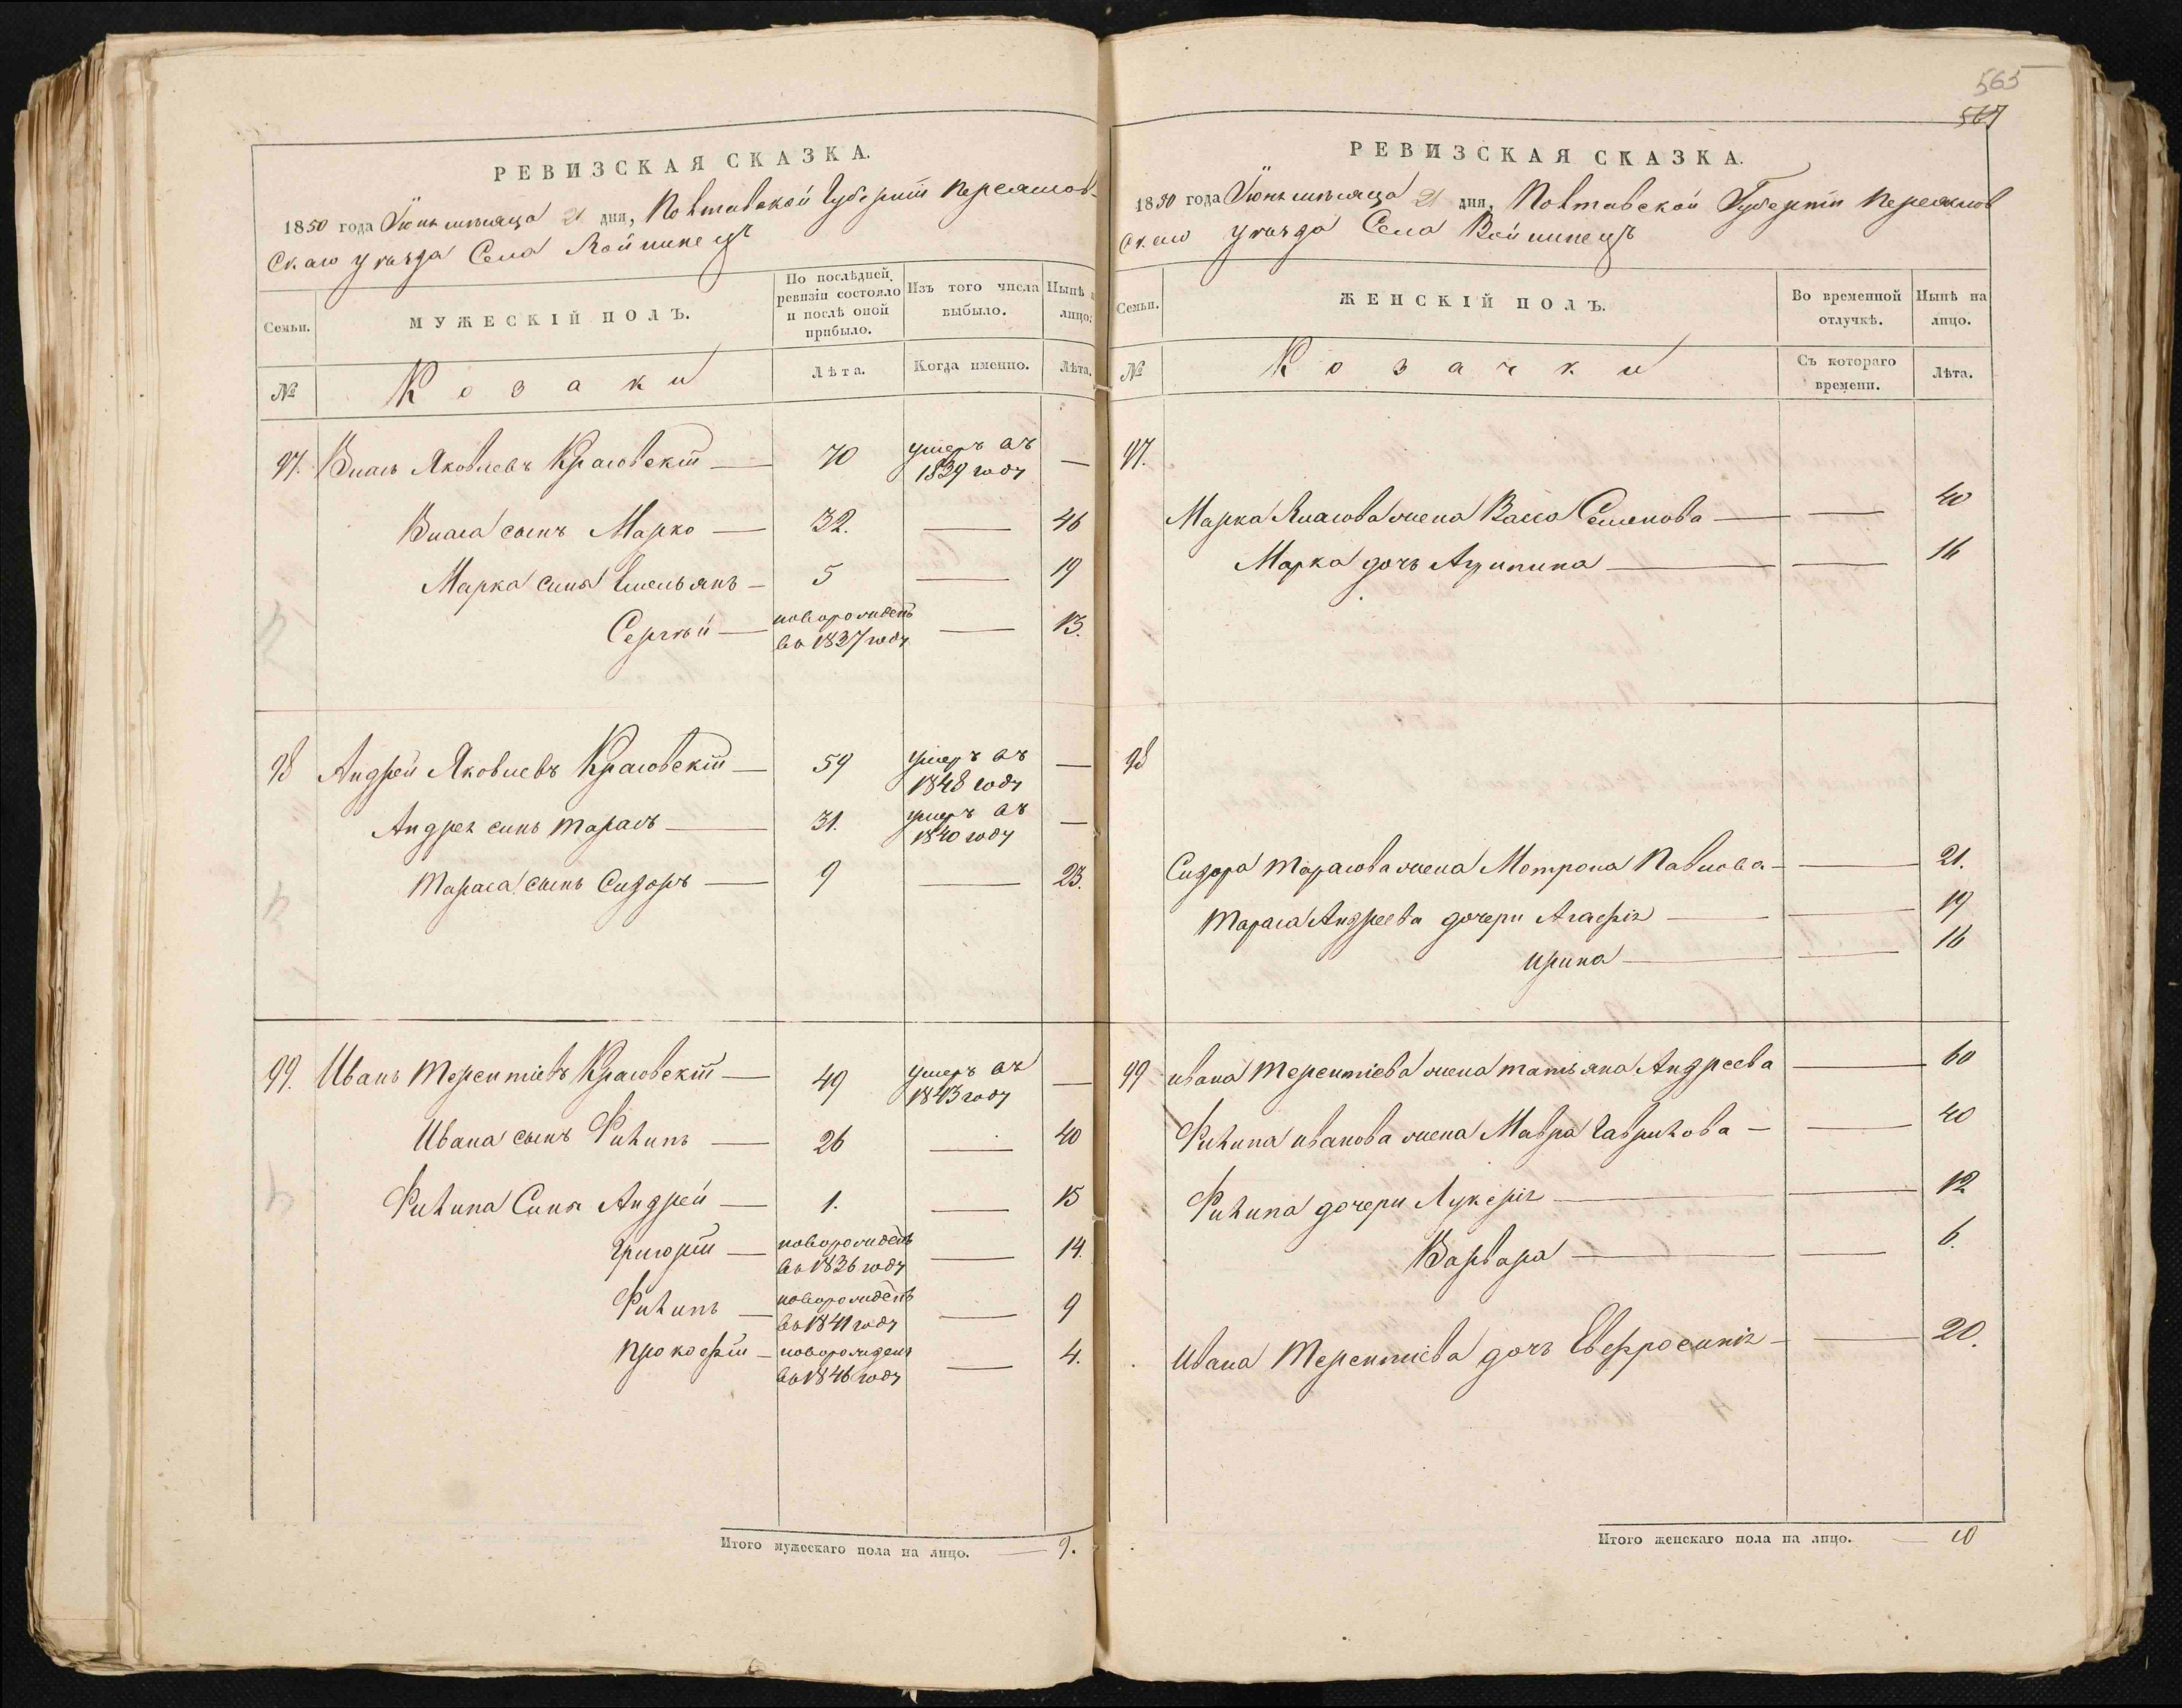 РЕВИЗСКАЯ СКАЗКА.
1850 года Іюнь мѣсяца 21 дня, Полтавской Губерніи Переяслов-
скаго уѣзда Села Войнинецъ
Семьи. МУЖЕСКІЙ ПОЛЪ. По послѣдней ревизіи состояло и послѣ оной прибыло. Изъ того числа выбыло. Нынѣ на лицо.
№ Козаки Лѣта. Когда именно. Лѣта.
97. Власъ Яковлевъ Красовскій — 70 умеръ въ 1839 году —
Власа сынъ Марко — 32. — 46
Марка сыны Емельянъ — 5 — 19
Сергѣй — новорожденъ въ 1837 году — 13.
98 Андрей Яковлевъ Красовскій — 59 умеръ въ 1848 году —
Андрея сынъ Тарасъ — 31. умеръ въ 1840 году —
Тараса сынъ Сидоръ — 9 — 23.
99. Иванъ Терентіевъ Красовскій — 49 умеръ въ 1843 году —
Ивана сынъ Филипъ — 26 — 40
Филипа Сыны Андрей — 1. — 15
Григорій — новорожденъ въ 1836 году — 14.
Филипъ — новорожденъ въ 1841 году — 9
Прокофій — новорожденъ въ 1846 году — 4.
Итого мужескаго пола на лицо. — 9.
565
567
РЕВИЗСКАЯ СКАЗКА.
1850 года Іюнь мѣсяца 21 дня, Полтавской Губерніи Переяслов
скаго уѣзда Села Войнинецъ
Семьи. ЖЕНСКІЙ ПОЛЪ. Во временной отлучкѣ. Нынѣ на лицо.
№ Козачки Съ котораго времени. Лѣта.
97.
Марка Власова жена Васса Семенова — — 40
Марка дочь Агрипина — — 16
98
Сидора Тарасова жена Мотрона Павлова — — 21.
Тараса Андреева дочери Агафія — — 19
Ирина — — 16
99 Ивана Терентіева жена Татьяна Андреева — 60
Филипа Иванова жена Мавра Гаврилова — — 40
Филипа дочери Лукерія — — 12
Варвара — — 6.
Ивана Терентіева дочь Евфросинія — — 20.
Итого женскаго пола на лицо. — 10